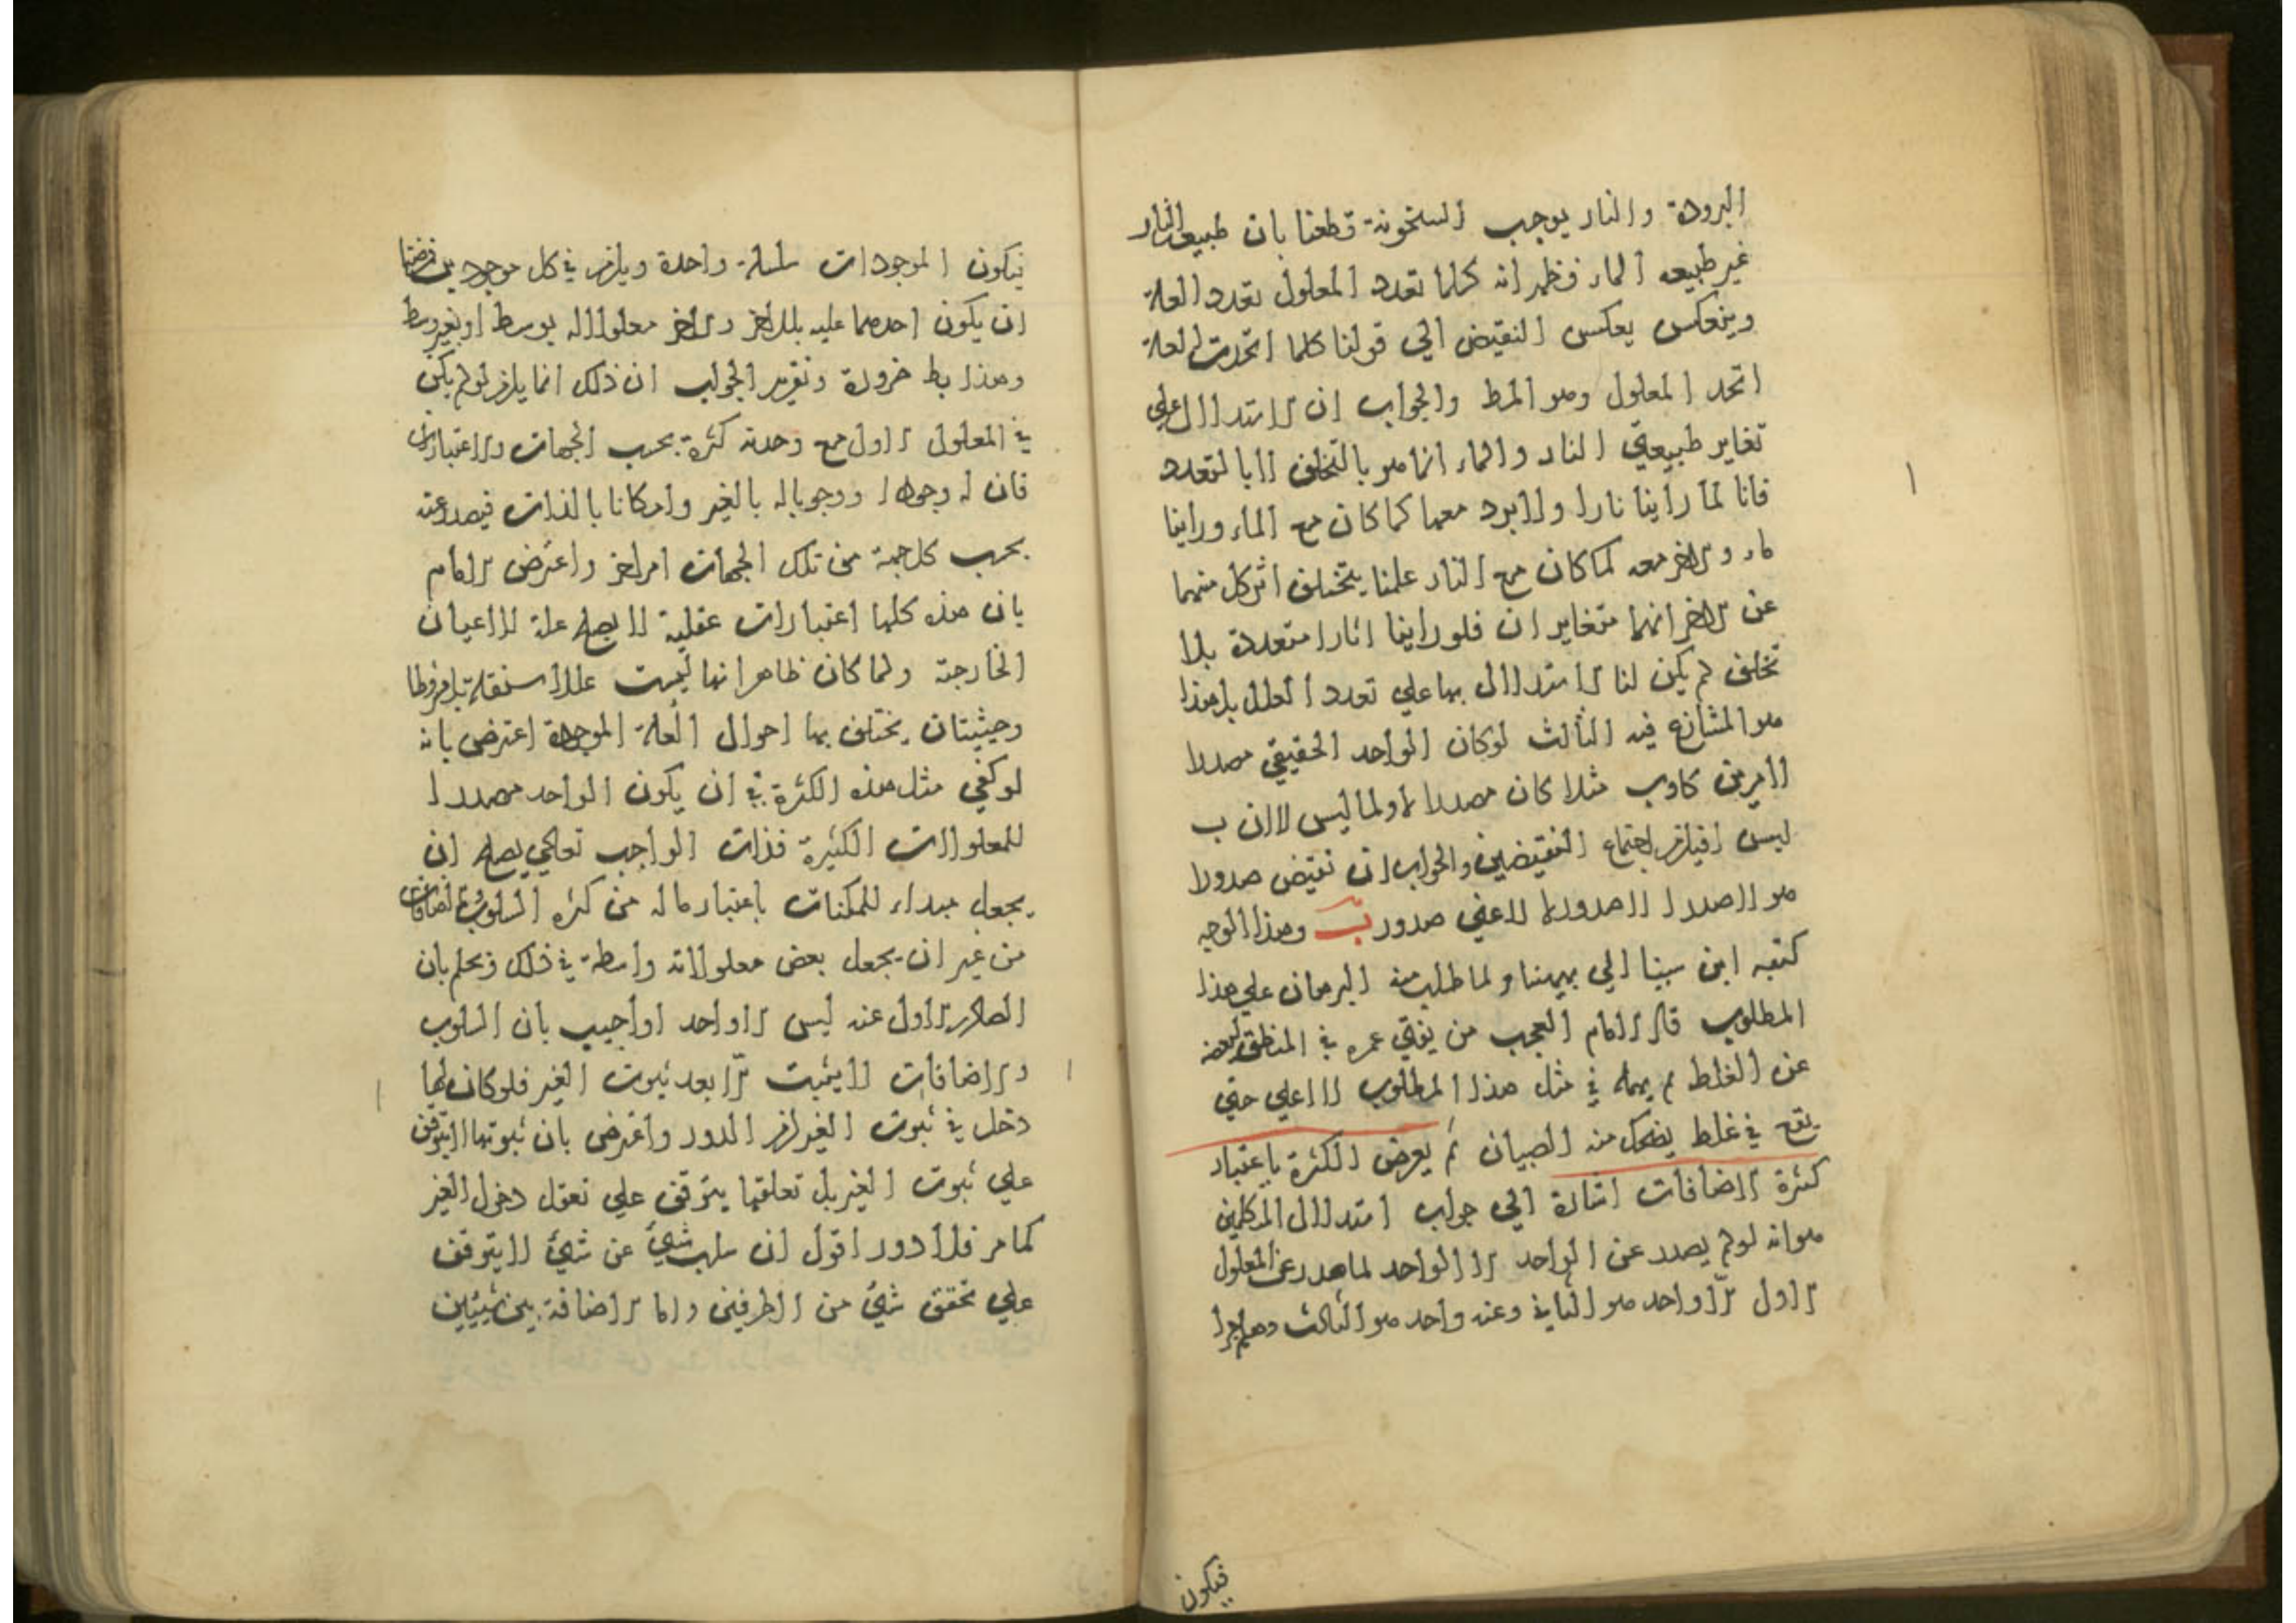 البرودة والنار يوجب السخونة قطعنا بان طبيعة النار
غير طبيعه الماء فظهر انه كلما تعدد المعلول تعدد العلة
وينعكس بعكس النقيض الي قولنا كلما اتحدت العلة
اتحد المعلول وهو المط والجواب ان الاستدلال علي
تغاير طبيعتي النار والماء انما هو بالتخلف لا بالتعدد
فانا لما راينا نارا ولا برد معها كما كان مع الماء وراينا
ماء ولا حر معه كما كان مع النار علمنا بتخلف اثر كل منهما
عن الاخر انهما متغايران فلو راينا اثارا متعددة بلا
تخلف لم يكن لنا الاستدلال بها علي تعدد العلل بل هذا
هو المتنازع فيه الثالث لو كان الواحد الحقيقي مصدرا
لامرين كا و ب مثلا كان مصدرا لا ولما ليس لا لان ب
ليس ا فيلزم اجتماع النقيضين والجواب ان نقيض صدور ا
هو لا صدور ا لا صدور لا ا اعني صدور ب وهذا الوجه
كتبه ابن سينا الي بهمنيار لما طلب منه البرهان علي هذا
المطلوب قال الامام العجب من يفني عمره في المنطق ليعصمه
عن الغلط ثم يهمله في مثل هذا المطلوب الاعلي حتي
يقع في غلط يضحك منه الصبيان ثم يعرض الكثرة باعتبار
كثرة الاضافات اشارة الي جواب استدلال المتكلمين
هو انه لو لم يصدر عن الواحد الا الواحد لما صدر عن المعلول
الاول الا واحد هو الثاني وعنه واحد هو الثالث وهلم جرا
فيكون
فيكون الموجودات سلسلة واحدة ويلزم في كل موجودين فرضنا
ان يكون احدهما علية للاخر والاخر معلولا له بوسط او بغير وسط
وهذا بط ضرورة وتقرير الجواب ان ذلك انما يلزم لو لم يكن
في المعلول الاول مع وحدته كثرة بحسب الجهات والاعتبارات
فان له وجودا ووجوبا له بالغير وامكانا بالذات فيصدر عنه
بحسب كل جهة من تلك الجهات امر اخر واعترض الامام
بان هذه كلها اعتبارات عقلية لا يصلح علة للاعيان
الخارجة ولما كان ظاهرا انها ليست عللا مستقلة بل شروطا
وحيثيتان يختلف بها احوال العلة الموجدة اعترض بانه
لو كفي مثل هذه الكثرة في ان يكون الواحد مصدرا
للمعلولات الكثيرة فذات الواجب تعالي يصلح ان
يجعل مبداء للممكنات باعتبار ما له من كثرة السلوب والاضافات
من غير ان يجعل بعض معلولاته واسطة في ذلك ونحكم بان
الصادر الاول عنه ليس الا واحد او اجيب بان السلوب
والاضافات لا يثبت الا بعد ثبوت الغير فلو كان لها
دخل في ثبوت الغير لزم الدور واعترض بان ثبوتها لا يتوقف
علي ثبوت الغير بل تعلقها يتوقف علي تعقل دخول الغير
كما مر فلا دور اقول ان سلب شيئ عن شيئ لا يتوقف
علي تحقق شيئ من الطرفين واما الاضافة بين شيئين